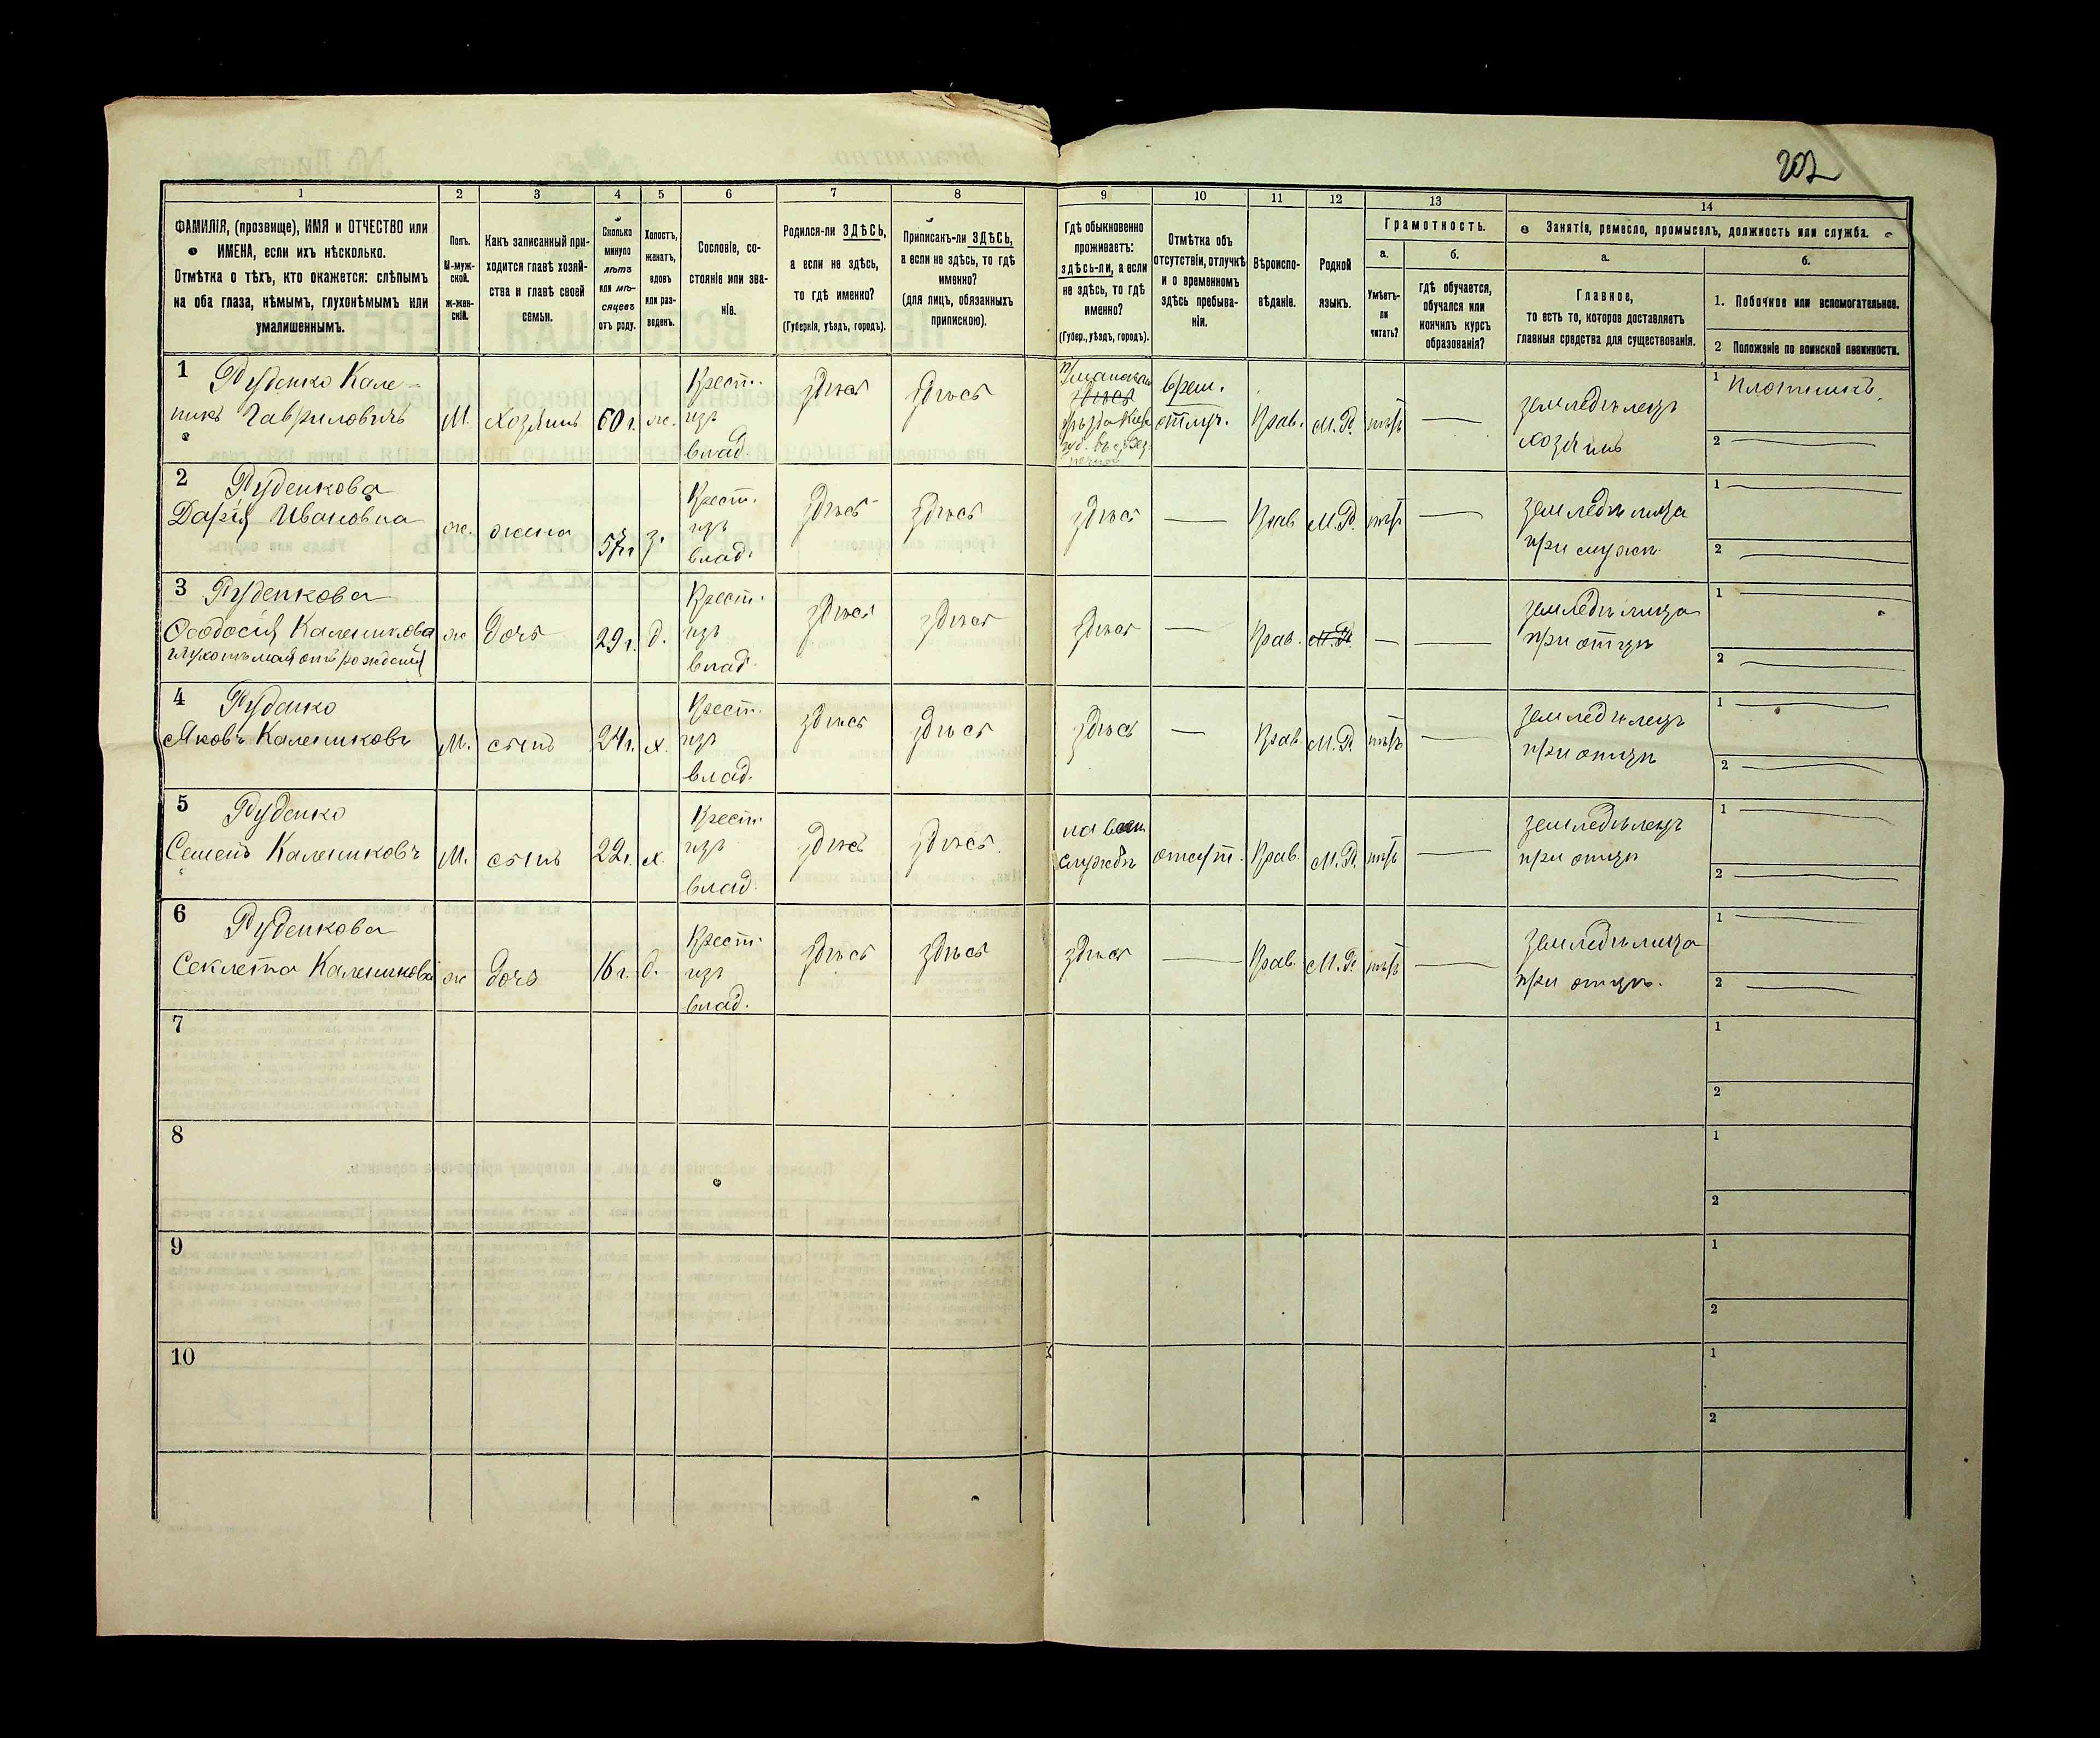 202
1
2
3
4
5
6
7
8
9
10
11
12
13
14
ФАМИЛІЯ, (прозвище), ИМЯ и ОТЧЕСТВО или
ИМЕНА, если ихъ нѣсколько.
Отмѣтка о тѣхъ, кто окажется: слѣпымъ
на оба глаза, нѣмымъ, глухонѣмымъ или
умалишеннымъ.
Полъ.
М-муж-
ской.
ж-жен-
скій.
Какъ записанный при-
ходится главѣ хозяй-
ства и главѣ своей
семьи.
Сколько
минуло
лѣтъ
или мѣ-
сяцевъ
отъ роду.
Холостъ,
женатъ,
вдовъ
или раз-
веденъ.
Сословіе, со-
стояніе или зва-
ніе.
Родился-ли ЗДѢСЬ,
а если не здѣсь,
то гдѣ именно?
(Губернія, уѣздъ, городъ).
Приписанъ-ли ЗДѢСЬ,
а если не здѣсь, то гдѣ
именно?
(для лицъ, обязанныхъ
припискою).
Гдѣ обыкновенно
проживаетъ:
здѣсь-ли, а если
не здѣсь, то гдѣ
именно?
(Губер., уѣздъ, городъ).
Отмѣтка объ
отсутствіи, отлучкѣ
и о временномъ
здѣсь пребыва-
ніи.
Вѣроиспо-
вѣданіе.
Родной
языкъ.
Грамотность.
а.
Умѣетъ-
ли
читать?
б.
гдѣ обучается,
обучался или
кончилъ курсъ
образованія?
Занятіе, ремесло, промыселъ, должность или служба.
а.
Главное,
то есть то, которое доставляетъ
главныя средства для существованія.
б.
1. Побочное или вспомогательное.
2 Положеніе по воинской повинности.
1
Руденко Кале-
никъ Гавриловичъ
М.
Хозяинъ
60 г.
ж.
Крест.
изъ
влад.
здѣсь
здѣсь
здѣсь
врем.
отлуч.
Прав.
М.Р.
нѣтъ
земледѣлецъ
хозяинъ
1 Плотникъ.
2
2
Руденкова
Дарія Ивановна
ж.
жена
57 г.
з.
Крест.
изъ
влад.
здѣсь
здѣсь
здѣсь
Прав
М.Р.
нѣтъ
земледѣлица
при мужѣ
1
2
3
Руденкова
Ѳеодосія Каленикова
глухонѣмая отъ рожденія
ж
дочь
29 г.
д.
Крест.
изъ
влад.
здѣсь
здѣсь
здѣсь
Прав.
М.Р.
земледѣлица
при отцѣ
1
2
4
Руденко
Яковъ Калениковъ
М.
сынъ
24 г.
х.
Крест.
изъ
влад.
здѣсь
здѣсь
здѣсь
Прав
М.Р.
нѣтъ
земледѣлецъ
при отцѣ
1
2
5
Руденко
Семенъ Калениковъ
М.
сынъ
22 г.
х.
Крест.
изъ
влад.
здѣсь
здѣсь
на воен
службѣ
отсут.
Прав.
М.Р.
нѣтъ
земледѣлецъ
при отцѣ
1
2
6
Руденкова
Секлета Каленикова
ж
дочь
16 г.
д.
Крест.
изъ
влад.
здѣсь
здѣсь
здѣсь
Прав.
М.Р.
нѣтъ
земледѣлица
при отцѣ.
1
2
7
1
2
8
1
2
9
1
2
10
1
2